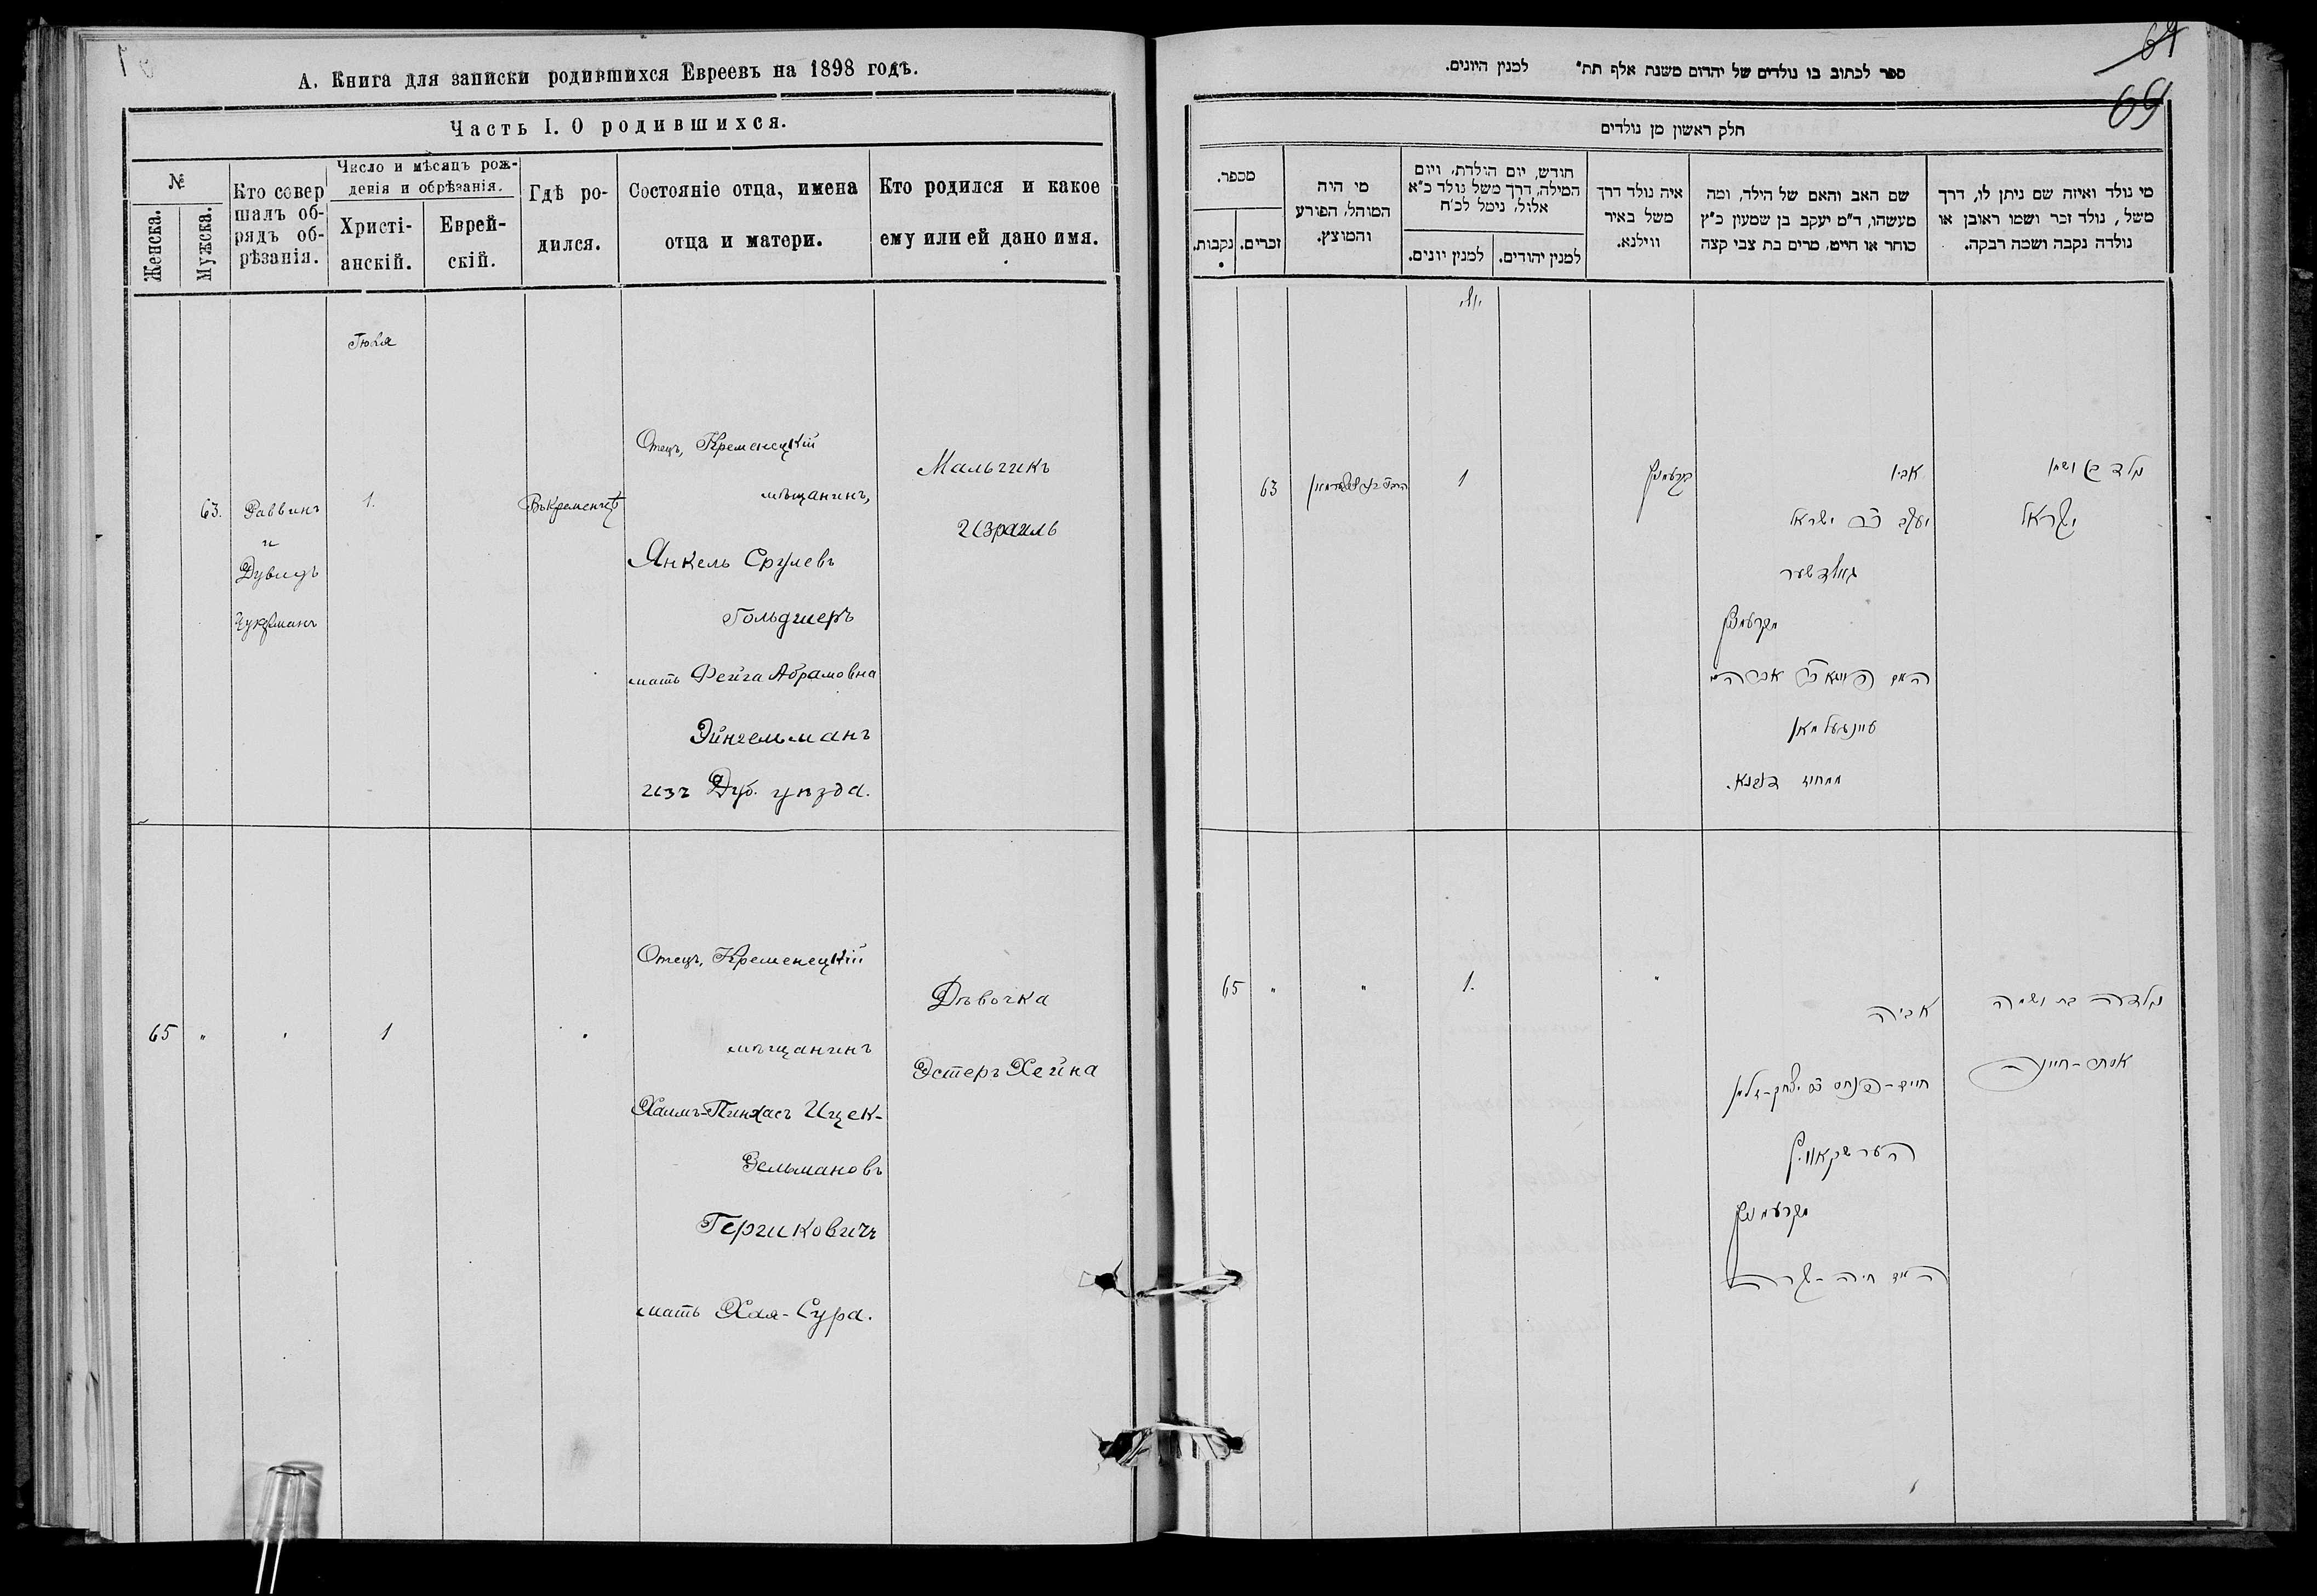 А. Книга для записки родившихся Евреевъ на 1898 годъ.
Часть I. О родившихся.
№
Женска.
Мужска.
Кто совер
шалъ об-
рядъ об-
рѣзанія.
Число и мѣсяцъ рож-
денія и обрѣзанія.
Христі-
анскій.
Еврей-
скій.
Гдѣ ро-
дился.
Состояніе отца, имена
отца и матери.
Кто родился и какое
ему или ей дано имя.
Іюля
63.
Раввинъ
и
Дувидъ
1.
Въ Кременцѣ
Отецъ, Кременецкій
мѣщанинъ,
Янкель Срулевъ
Гольдшеръ
мать Фейга Абрамовна
Эйнгельманъ
изъ Дуб. уѣзда.
Мальчикъ
Израиль
65
"
"
1
"
Отецъ, Кременецкій
мѣщанинъ
Хаимъ-Пинхасъ Ицек-
Зельмановъ
Гершковичъ
мать Хая-Сура.
Дѣвочка
Эстеръ Хейна
69
ספר לכתוב בו נולדים של יהדום משנת אלף תת״ למנין היונים.
חלק ראשון מן נולדים
מספר.
נקבות.
זכרים.
מי היה
המוהל, הפורע
והמוצץ.
חודש, יום הולדת, ויום
המילה, דרך משל נולד כ״א
אלול, נימל לכ״ח
למנין יונים.
למנין יהודים.
איה נולד דרך
משל באיר
ווילנא.
שם האב והאם של הילד, ומה
מעשהו, ד״מ יעקב בן שמעון כ״ץ
סוחר או חייט, מרים בת צבי קצה
מי נולד ואיזה שם ניתן לו, דרך
משל, נולד זכר ושמו ראובן או
נולדה נקבה ושמה רבקה.
יולי
63
1
בקרעמניץ
אביו
יעקב ב״ר ישראל
גאלדשער
מקרעמניץ
אברהם
מחוז דובנא.
נולד בן ושמו
ישראל
65
"
"
1.
"
אביה
חיים-פנחס ב״ר יצחק-זלמן
הערשקאוויץ
מקרעמניץ
חיה-שרה
נולדה בת ושמה
אסתר-חיינה